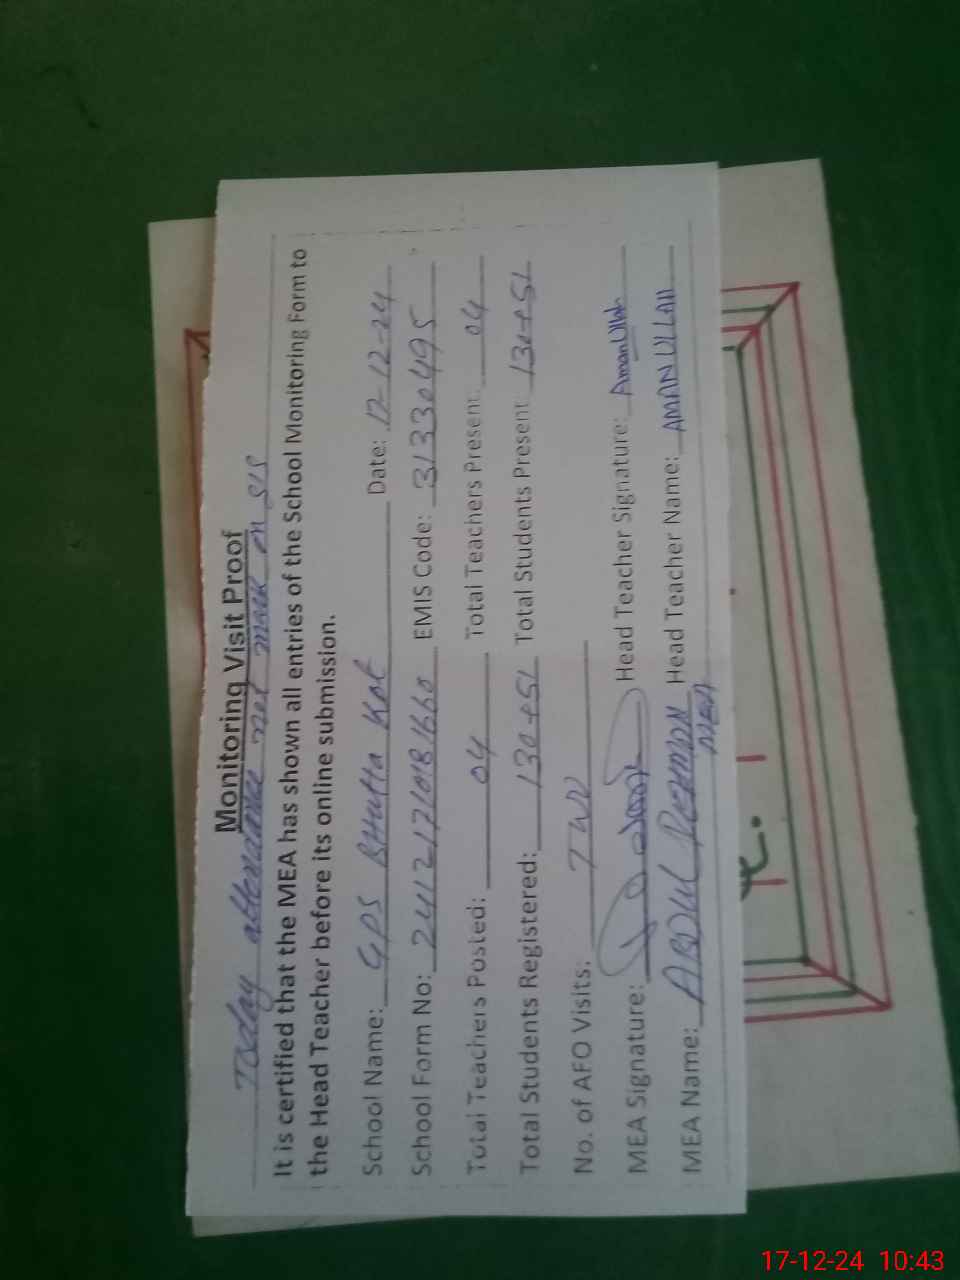 Monitoring Visit Proof
Today attendance not mark on SIS
It is certified that the MEA has shown all entries of the School Monitoring Form to
the Head Teacher before its online submission.
School Name: GPS BHutta Kot Date: 17-12-24
School Form No: EMIS Code: 31330495
Total Teachers Posted: 04 Total Teachers Present 04
Total Students Registered: 130+51 Total Students Present 130+51
No. of AFO Visits: Two
MEA Signature: Head Teacher Signature: AmanUllah
MEA Name: ABDUL REHMAN Head Teacher Name: AMAN ULLAH
MEA
17-12-24 10:43